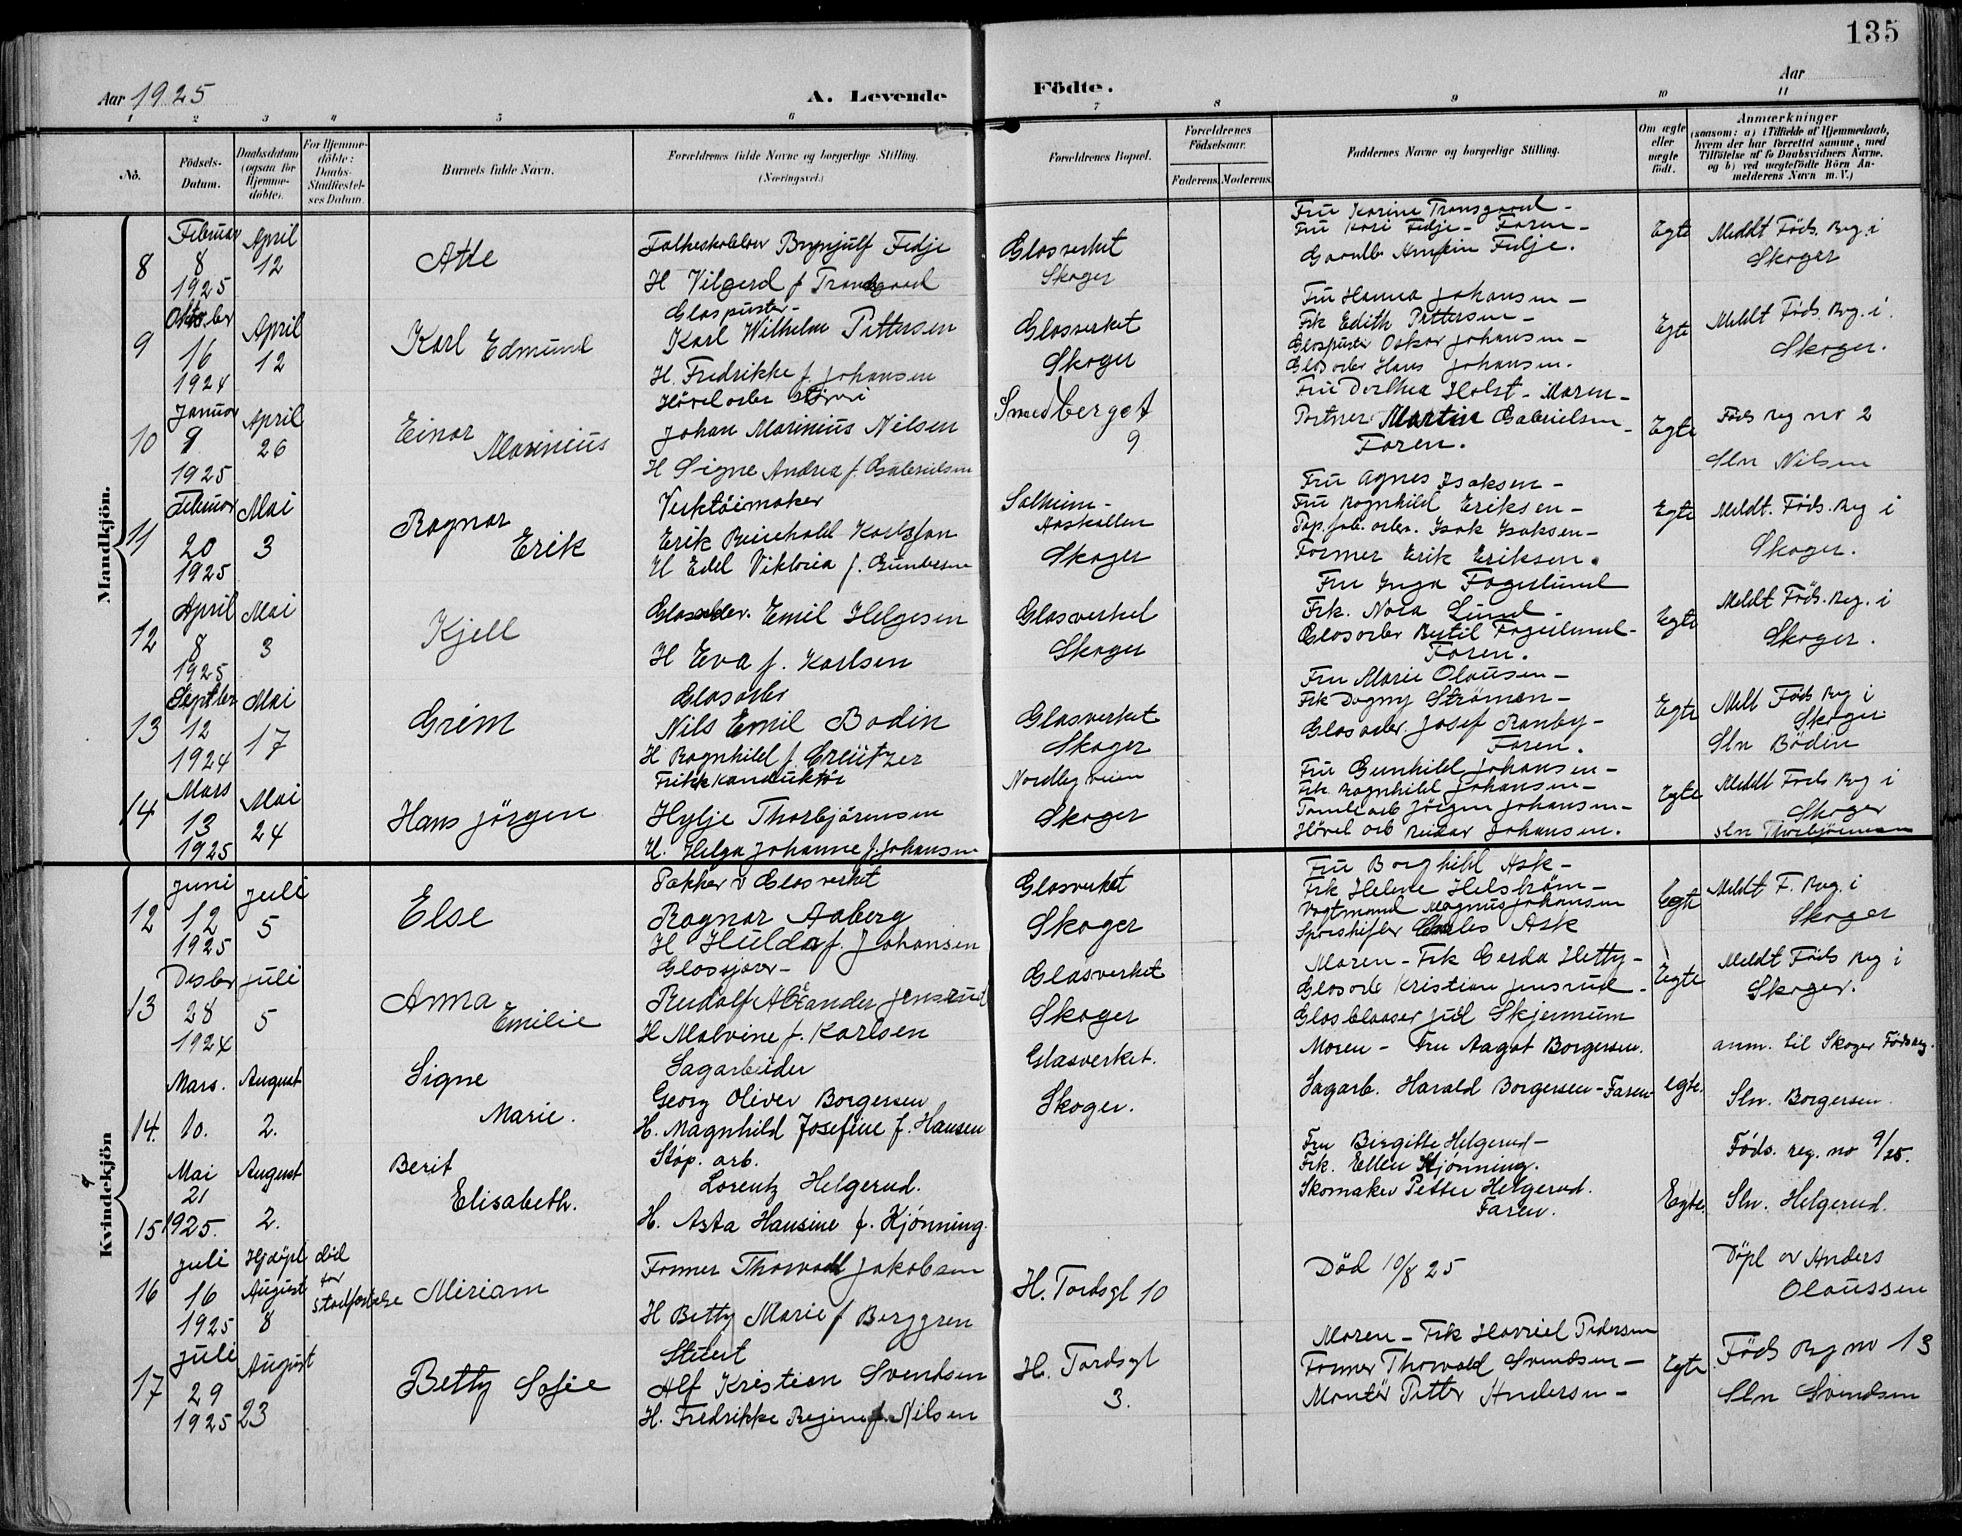 135
Aar 1925
A. Levende
Födte.
Aar
1 2 3 4 5 6 7 8 9 10 11
No.
Födsels-Datum.
Daabsdatum (ogsaa for Hjemme-döbte).
For Hjemme-döbte: Daabs-Stadfæstel-ses Datum.
Barnets fulde Navn.
Forældrenes fulde Navne og borgerlige Stilling.
(Næringsvei.)
Forældrenes Bopæl.
Forældrenes Födselsaar.
Faderens. Moderens.
Faddernes Navne og borgerlige Stilling.
Om ægte eller uægte födt.
Anmærkninger
(saasom: a) i Tilfælde af Hjemmedaab, hvem der har forrettet samme, med Tilföielse af to Daabsvidners Navne. og b) ved uægtefödte Börn An-melderens Navn m. V.)
Mandkjön.
8
Februar 8 1925
April 12
Atle
Folkeskolelær Brynjulf Fedje
H Vilgerd f Transgaard
Glasverket
Skoger
Fru Karine Transgaard -
Fru Kari Fedje - Faren -
Fedje.
Egte
Meldt Föds. Reg. i
Skoger
9
Oktober 16 1924
April 12
Karl Edmund
Glaspuster -
Karl Wilhelm Pettersen
H. Fredrikke f. Johansen
Glasverket
Skoger
Fru Hanna Johansen -
Frk Edith Pettersen -
Glaspuster Oskar Johansen -
Glasarbr Hans Johansen.
Egte
Meldt Föds. Reg. i.
Skoger.
10
Januar 9 1925
April 26
Einar Marinius
Hövelarbr
Johan Marinius Nilsen
H Signe Andrea f. Gabrielsen
Smedberget
9
Fru Dorthea Holst - Moren -
Portner Martin Gabrielsen -
Faren.
Egte
Föds reg no 2
Sln Nilsen
11
Februar 20 1925
Mai 3
Ragnar Erik
Verktöimaker
Erik Reinhold Karlsson
H Edel Viktoria f. Gundersen
Solheim -
Aaskollen
Skoger
Fru Agnes Isaksen -
Fru Ragnhild Eriksen -
Pap. fab. arbr. Isak Isaksen -
Former Erik Eriksen.
Egte
Meldt. Föds. Reg i
Skoger.
12
April 8 1925
Mai 3
Kjell
Glasarbr. Emil Helgesen
H Eva f. Karlsen
Glasverket
Skoger
Fru Inga Fagerlund
Frk. Nora Lund -
Glasarbr Bertil Fagerlund -
Faren.
Egte
Meldt Föds. Reg. i
Skoger.
13
Septber 12 1924
Mai 17
Grim
Glasarbr
Nils Emil Bodin
H Ragnhild f. Creützer
Glasverket
Skoger
Fru Marie Olausen -
Frk Dagny Strömen -
Glasarbr. Josef Ranby -
Faren.
Egte
Meldt Föds Reg i
Skoger
Sln Bödin
14
Mars 13 1925
Mai 24
Hans Jörgen
Trikkkonduktör
Hylje Thorbjörnsen
H. Helga Johanne f. Johansen
Nordbyveien
Skoger
Fru Gunhild Johansen -
Frk Ragnhild Johansen -
Tomtearb Jörgen Johansen -
Hövel arb Reidar Johansen.
Egte
Meldt Föds Reg i
Skoger
sln Thorbjörnsen
Kvindekjön
12
Juni 12 1925
Juli 5
Else
Pakker v Glasverket
Ragnar Aaberg
H Hulda f. Johansen
Glasverket
Skoger
Fru Borghild Ask -
Frk Helene Helström -
Vogtmand Magnus Johansen
Sporskifter Ask
Egte
Meldt F. Reg. i
Skoger
13
Desbr 28 1924
Juli 5
Anna Emilie
Glassjærer -
Rudolf Alexander Jensrud
H Malvine f. Karlsen
Glasverket
Skoger
Moren - Frk Gerda Hetty -
Glasarb Kristian Jensrud -
Glasblaaser Juel Skjennum
Egte
Meldt Föds Reg i
Skoger.
14.
Mars. 10.
August 2.
Signe Marie.
Sagarbeider
Georg Oliver Borgersen
H. Magnhild Josefine f. Hansen
Glasverket.
Skoger.
Moren - Fru Aagot Borgersen.
Sagarb. Harald Borgersen - Faren
egte.
anm. til Skoger Födsreg.
Sln. Borgersen.
15
Mai 21 1925.
August 2.
Berit Elisabeth.
Støp. arb.
Lorentz Helgerud.
H. Asta Hansine f. Kjønning.
Fru Birgitte Helgerud -
Frk. Ellen Kjønning.
Skomaker Petter Helgerud.
Faren.
Egte.
Föds. reg. no 9/25.
Sln. Helgerud.
16
Juli 16 1925
Hjdöpt August 8
död før stadfæstelse
Miriam
Former Thorvald Jakobsen
H Betty Marie f Berggren
H. Tordsgt 10
Död 10/8 25
Döpt av Anders
Olaussen
17
Juli 29 1925
August 23
Betty Sofie
Stuert
Alf Kristian Svendsen
H. Fredrikke Regine f. Nilsen
H. Tordsgt
3.
Moren - Frk Harriet Pedersen
Former Thorvald Svendsen -
Montör Petter Andersen -
Egte
Föds Reg no 13
Sln Svendsen